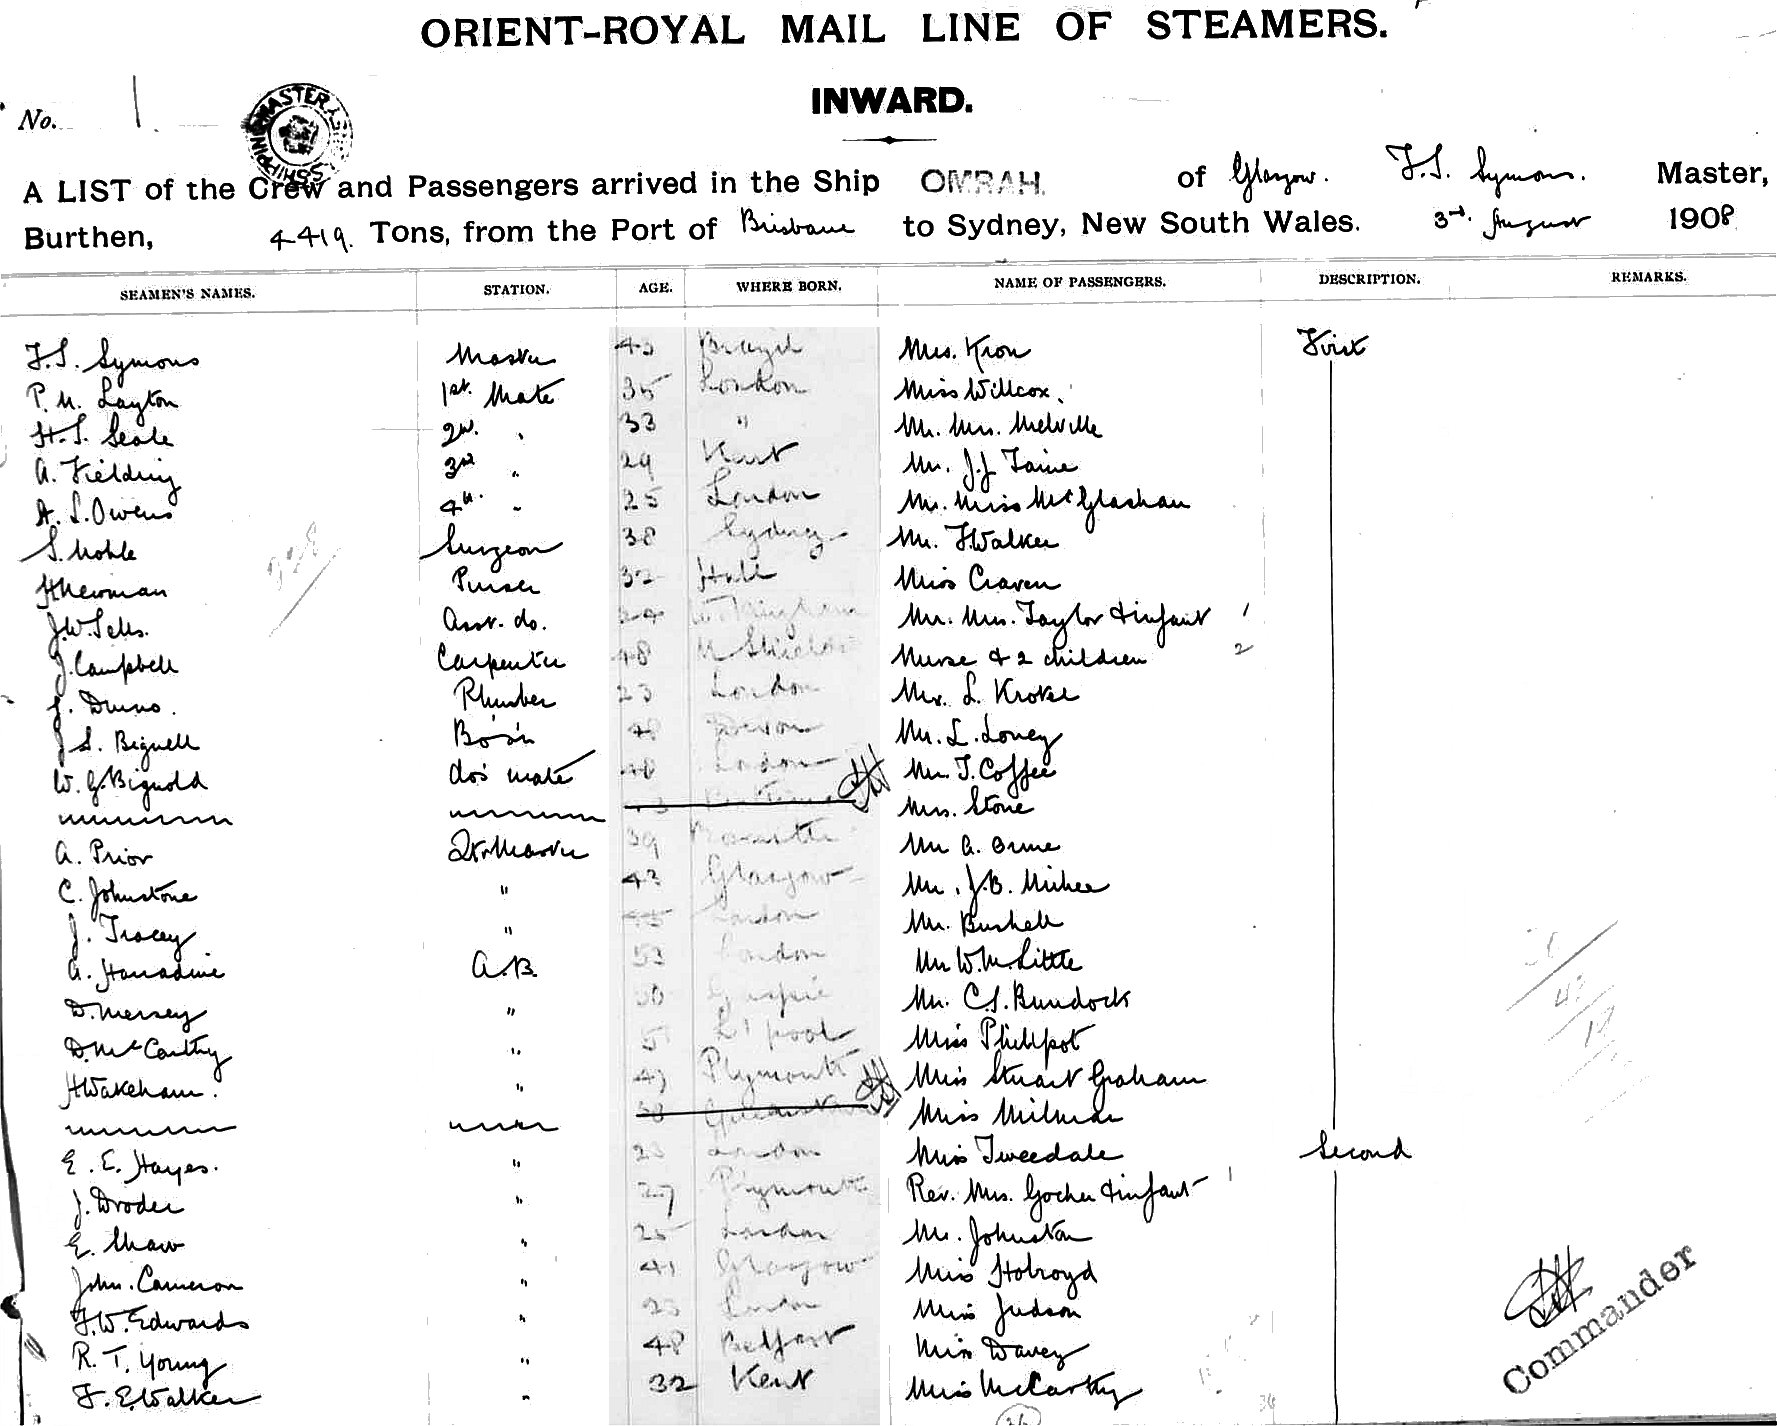 ORIENT-ROYAL MAIL LINE OF STEAMERS.
INWARD.
No. 1.
A LIST of the Crew and Passengers arrived in the Ship OMRAH. of Glasgow. F.S. Symons. Master,
Burthen, 4419. Tons, from the Port of Brisbane to Sydney, New South Wales. 3rd. August 1908
SEAMEN'S NAMES. STATION. AGE. WHERE BORN. NAME OF PASSENGERS. DESCRIPTION. REMARKS.
F.S. Symons Master 43 Brazil Mrs. Kron First
P. M. Layton 1st. Mate 35 London Miss Willcox.
H.S. Seale 2nd. " 33 " Mr. Mrs. Melville
A. Fielding 3rd " 29 Kent Mr. J.J. Taine
A. S. Owens 4th. " 25 London Mr. Miss McGlashan
S. Noble Surgeon 38 Sydney Mr. F. Walker
H Newman Purser 32 Hull Miss Craven
J.W. Sells. Asst. do. 24 Mr. Mrs. Taylor & infant 1
J. Campbell Carpenter 48 N Shields Nurse & 2 children 2
Plumber 23 London Mr. L. Krokel
J S. Bignell Bo's'n 48 Devon Mr. L. Loney
W. G. Bignold do's mate 48 London Mr. T. Coffee
Mrs. Stone
A. Prior Qr Master 39 Mr A. Orme
C. Johnstone " 43 Glasgow Mr. J.B. Mickee
J. Tracey " 45 London Mr. Bushell
A. Harradine A.B. 53 London Mr W.M. Little
D. Mersey " Mr. C.S. Bundock
D. McCarthy " 51 L'pool Miss Philpot
H Wakeham. " 47 Plymouth Miss Stuart Graham
Miss Milman
E. E. Hayes. " 23 London Miss Tweedale Second
J. Droder " 27 Plymouth Rev. Mrs. Gocher & infant 1
E. Shaw " 25 London Mr. Johnston
John. Cameron " 41 Glasgow Miss Holroyd
F.W. Edwards " 23 London Miss Judson
R. T. Young " 48 Belfast Miss Davey
F. E. Walker " 32 Kent Miss McCarthy
Commander